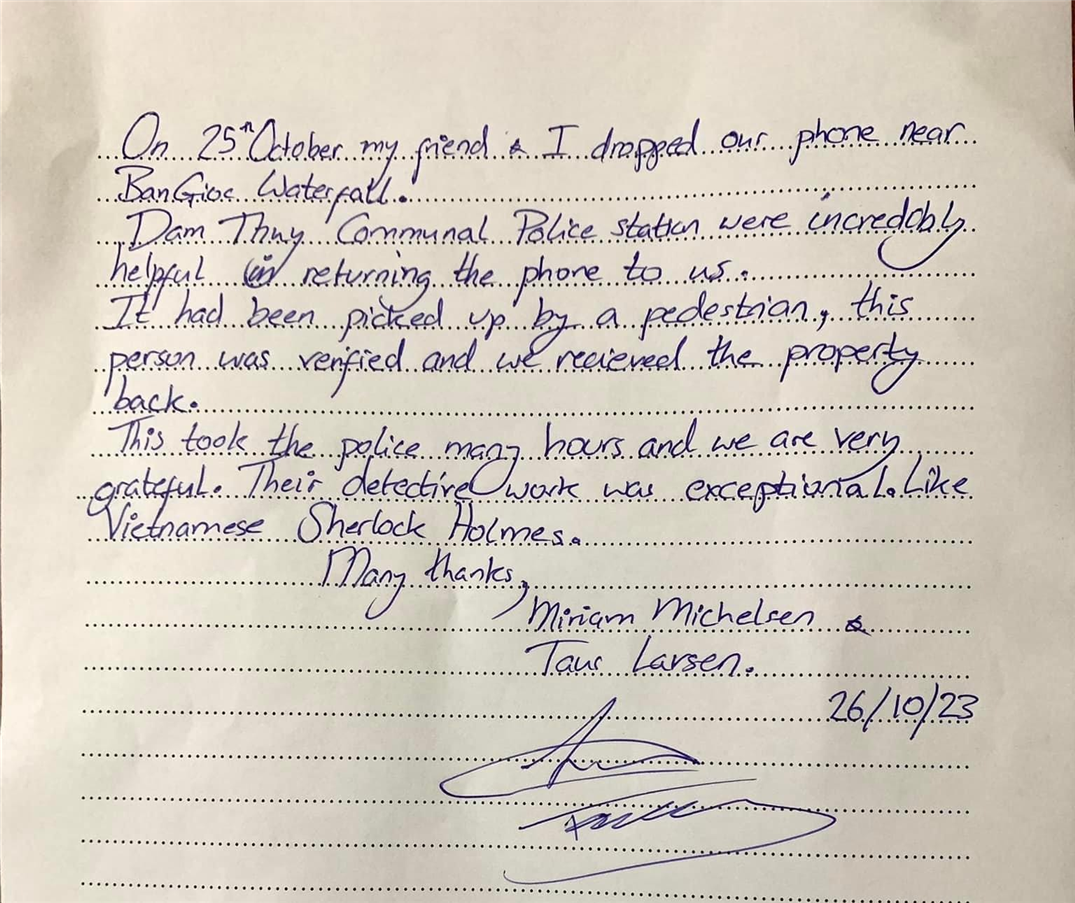 On 25th October my friend & I dropped our phone near
Ban Gioc Waterfall.
Dam Thuy Communal Police station were incredibly
helpful in returning the phone to us.
It had been picked up by a pedestrian, this
person was verified and we recieved the property
back.
This took the police many hours and we are very
grateful. Their detective work was exceptional. Like
Vietnamese Sherlock Holmes.
Many thanks,
Miriam Michelsen &
Taus Larsen.
26/10/23